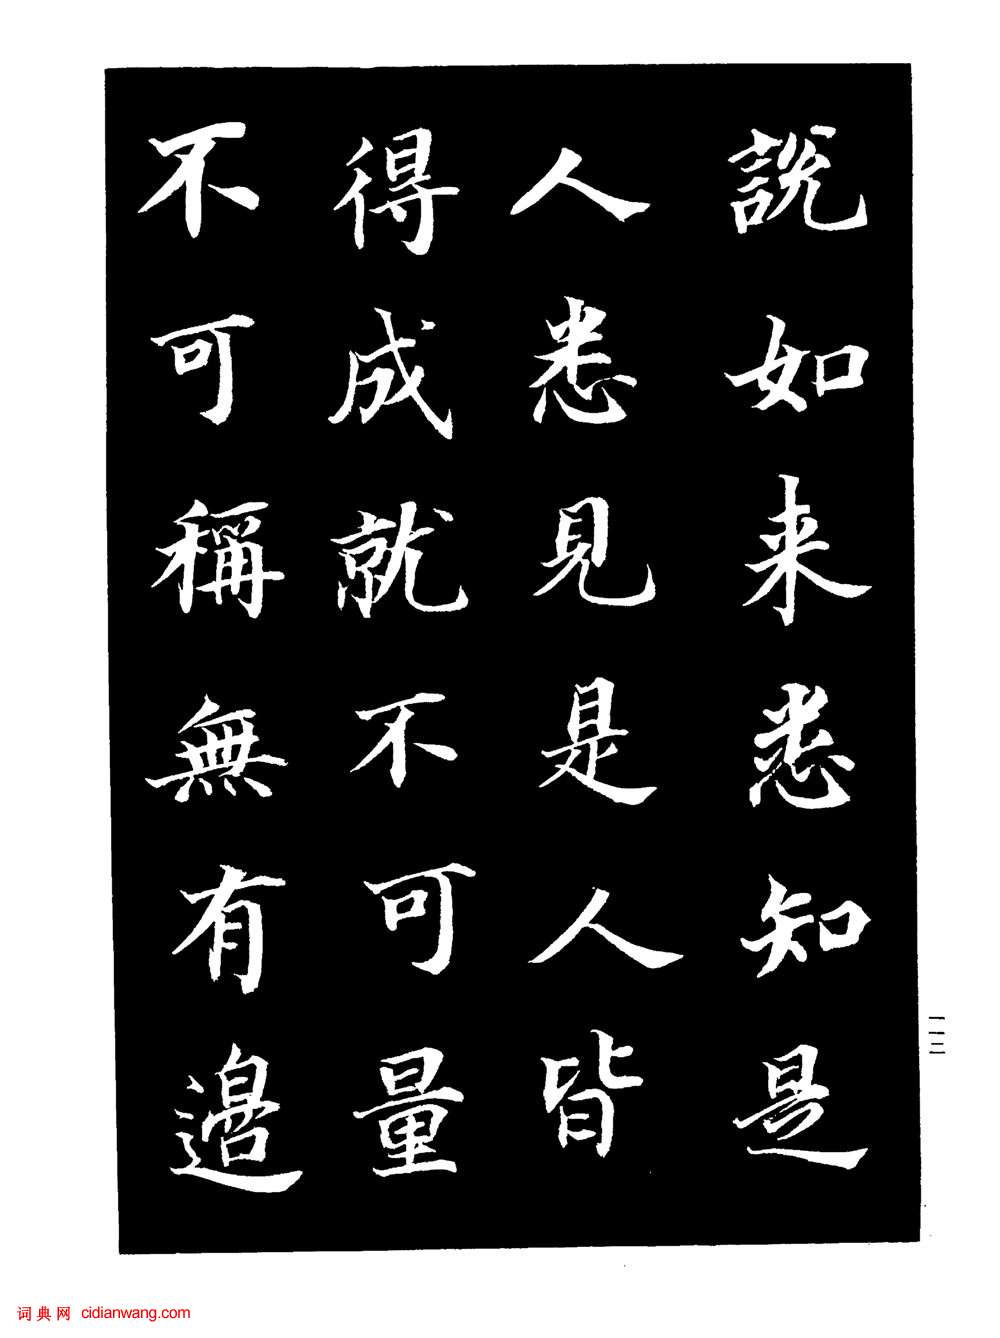 說如来悉知是
人悉見是人皆
得成就不可量
不可稱無有邊
一二三
词典网 cidianwang.com